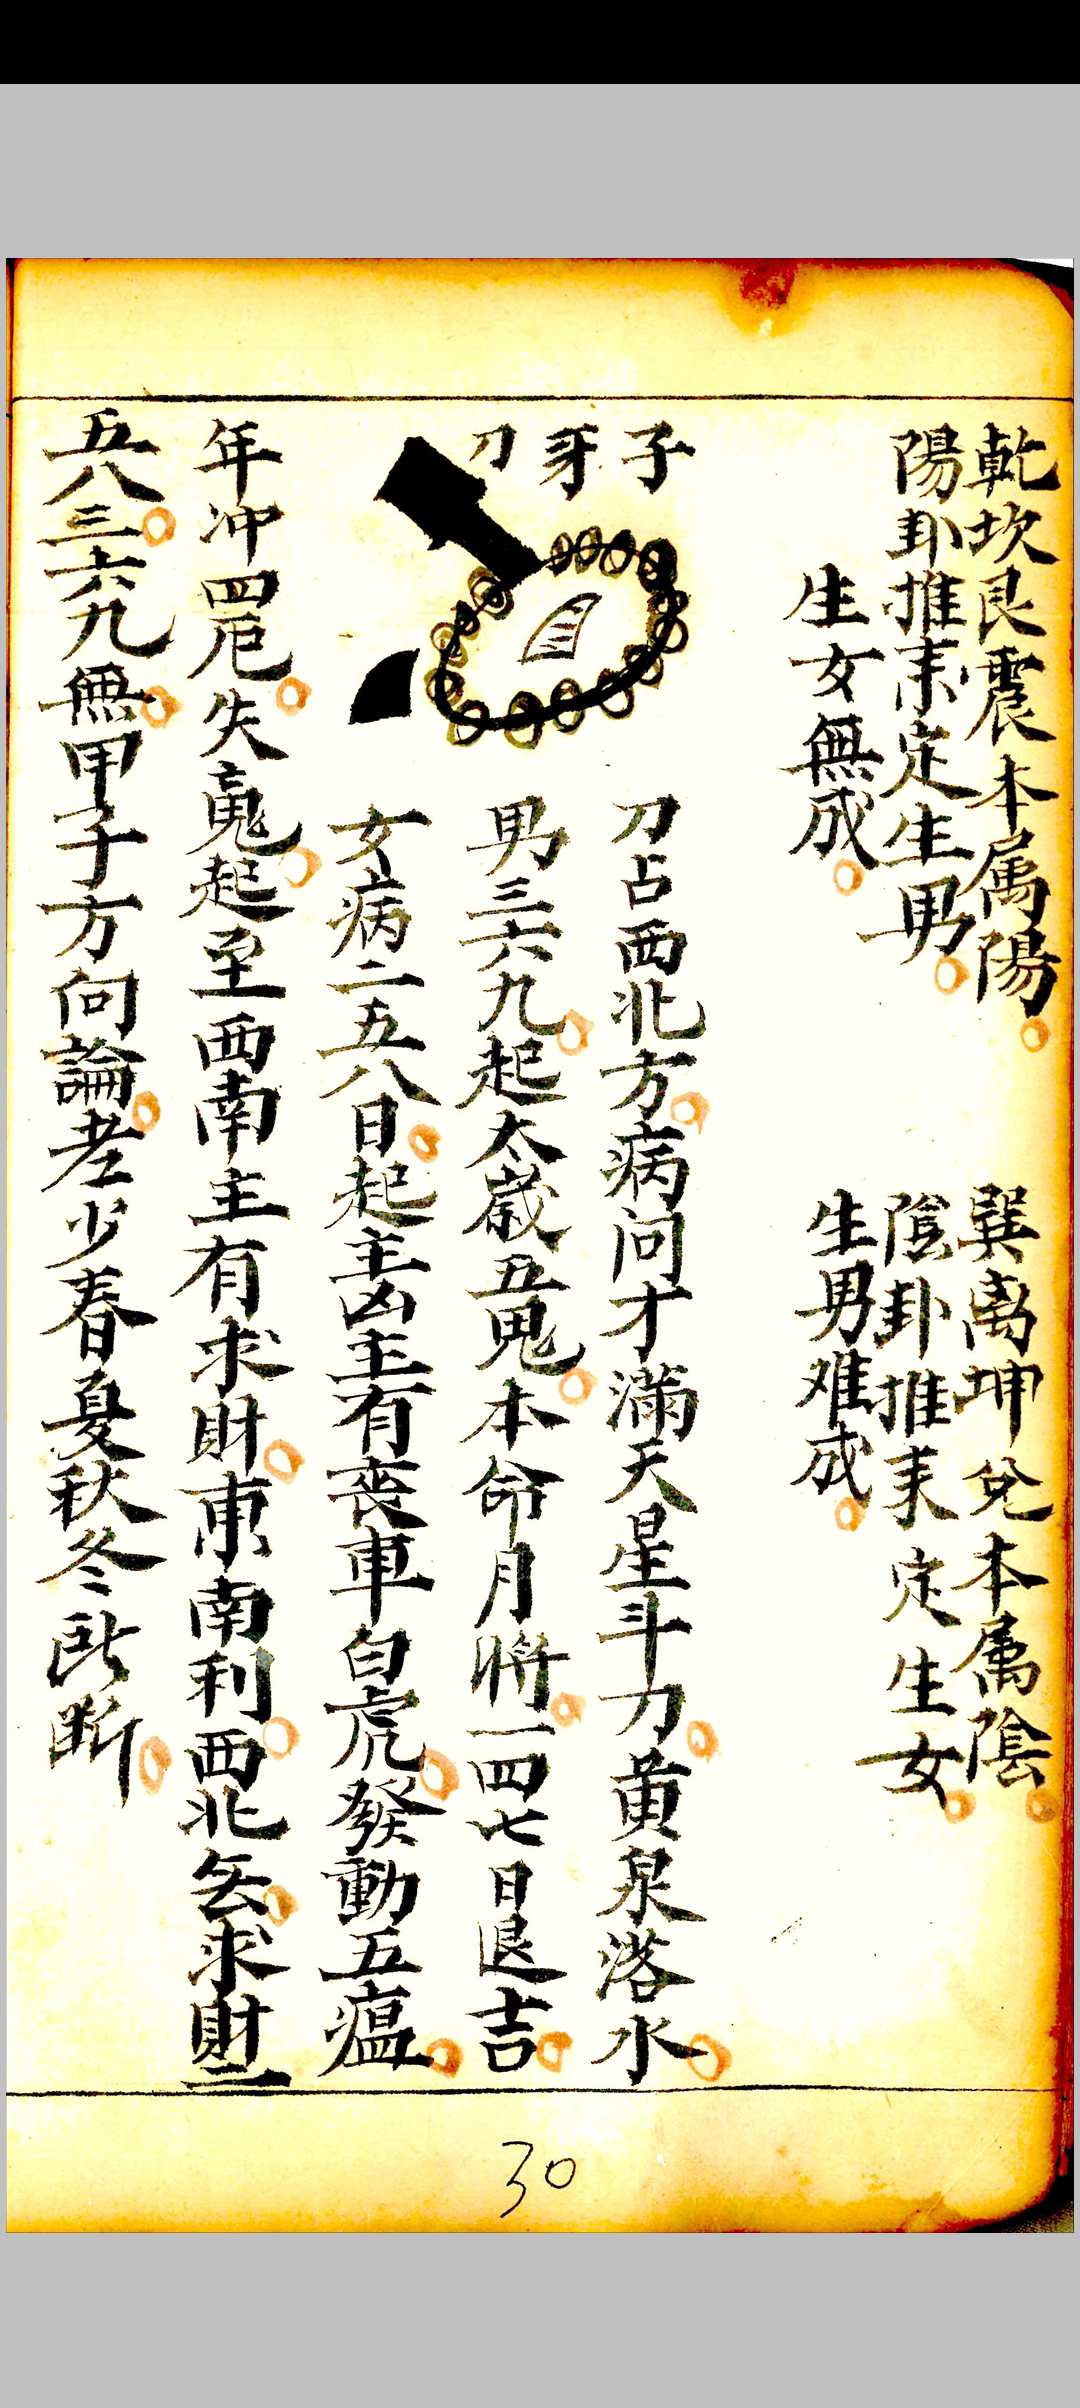 乾坎艮震本属陽
陽卦推来定生男
生女無成
巽离坤兌本属陰
陰卦推来定生女
生男难成
子牙刀
刀占西北方病问才滿天星斗力黄泉落水
男三六九起太歲五鬼本命月將一四七日退吉
女病二五八日起主凶主有喪車白虎發動五瘟
年冲四厄失魂起至西南主有求財東南利西北去求財二
五八三六九無甲子方向論老少春夏秋冬此断
30